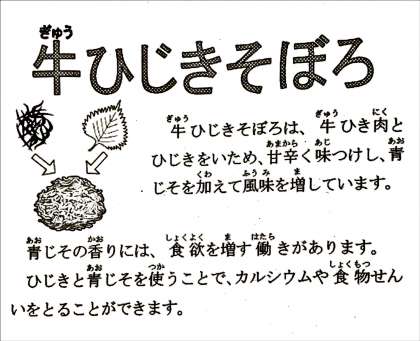 ぎゅう
牛ひじきそぼろ
ぎゅう ぎゅう にく
牛ひじきそぼろは、牛ひき肉と
あまから あじ あお
ひじきをいため、甘辛く味つけし、青
くわ ふうみ ま
じそを加えて風味を増しています。
あお かお しょくよく ま はたら
青じその香りには、食欲を増す働きがあります。
あお つか しょくもつ
ひじきと青じそを使うことで、カルシウムや食物せん
いをとることができます。